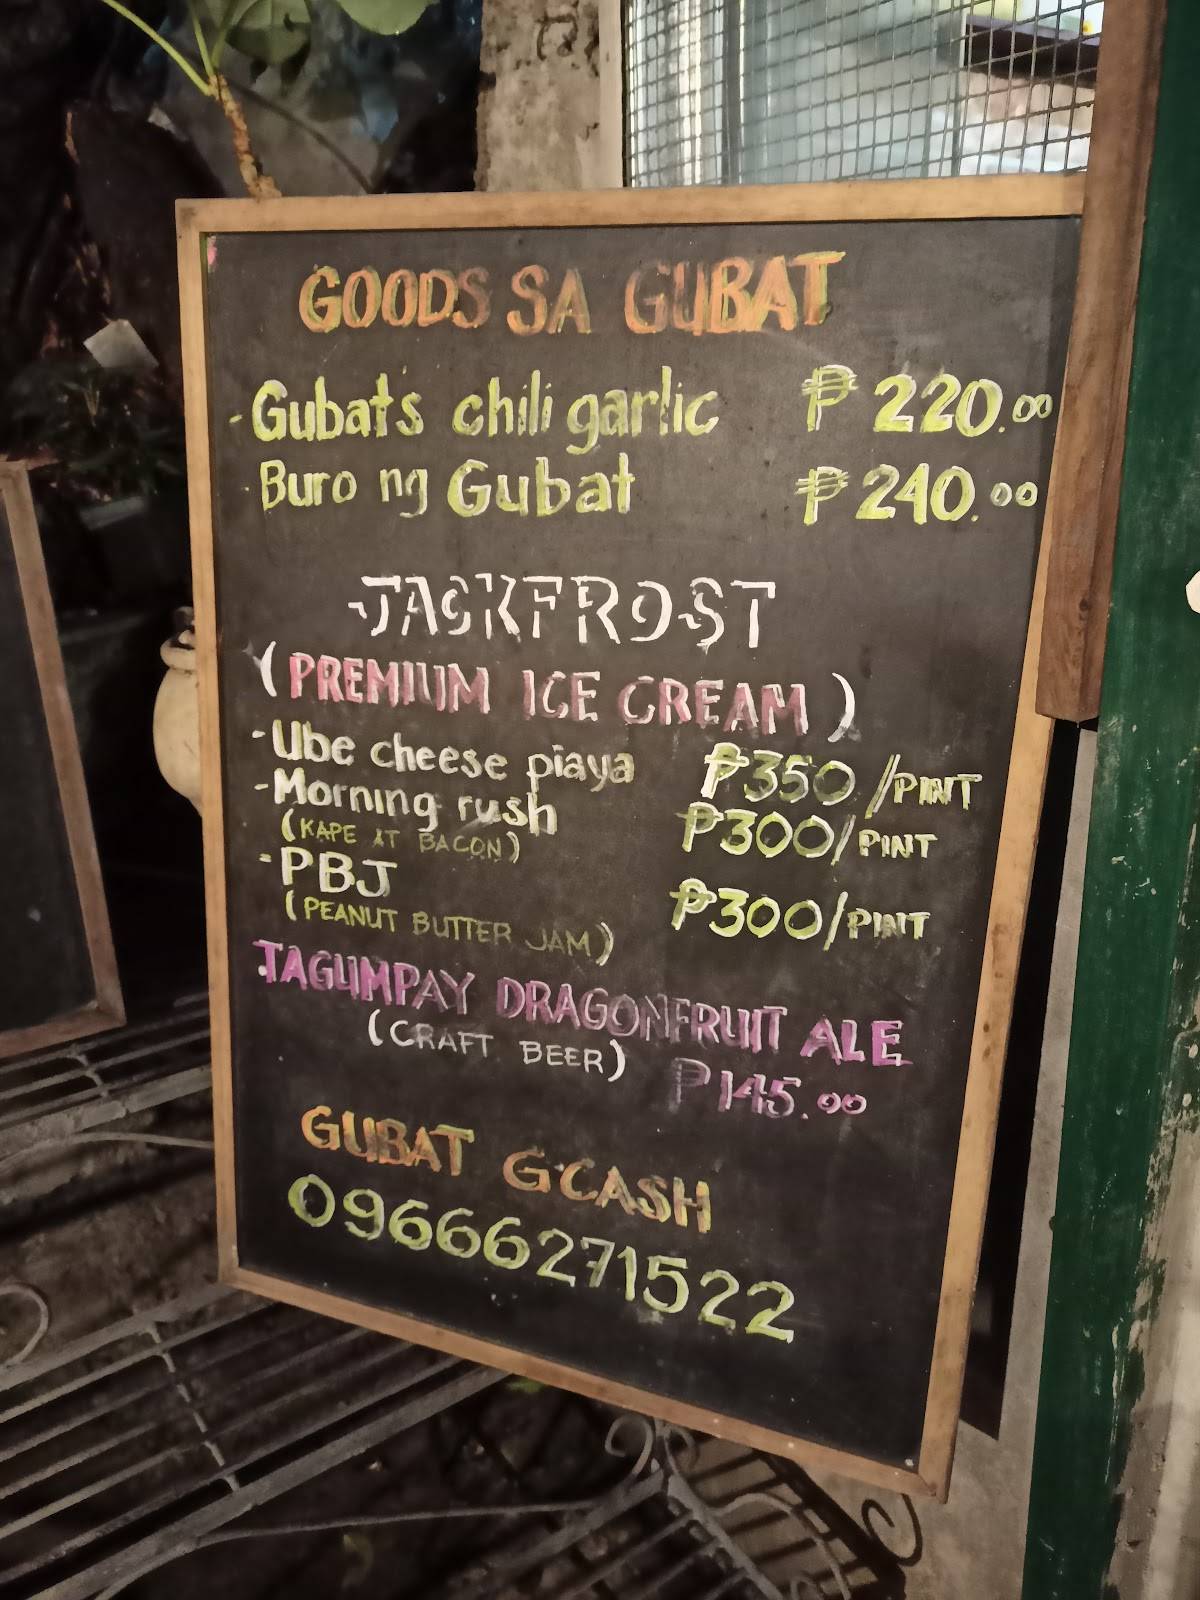 GOODS SA GUBAT
- Gubat's chili garlic ₱ 220.00
- Buro ng Gubat ₱ 240.00
JACKFROST
(PREMIUM ICE CREAM)
- Ube cheese piaya ₱350 /PINT
- Morning rush ₱300/PINT
(KAPE AT BACON)
- PBJ ₱300/PINT
(PEANUT BUTTER JAM)
TAGUMPAY DRAGONFRUIT ALE
(CRAFT BEER) ₱145.00
GUBAT GCASH
09666271522